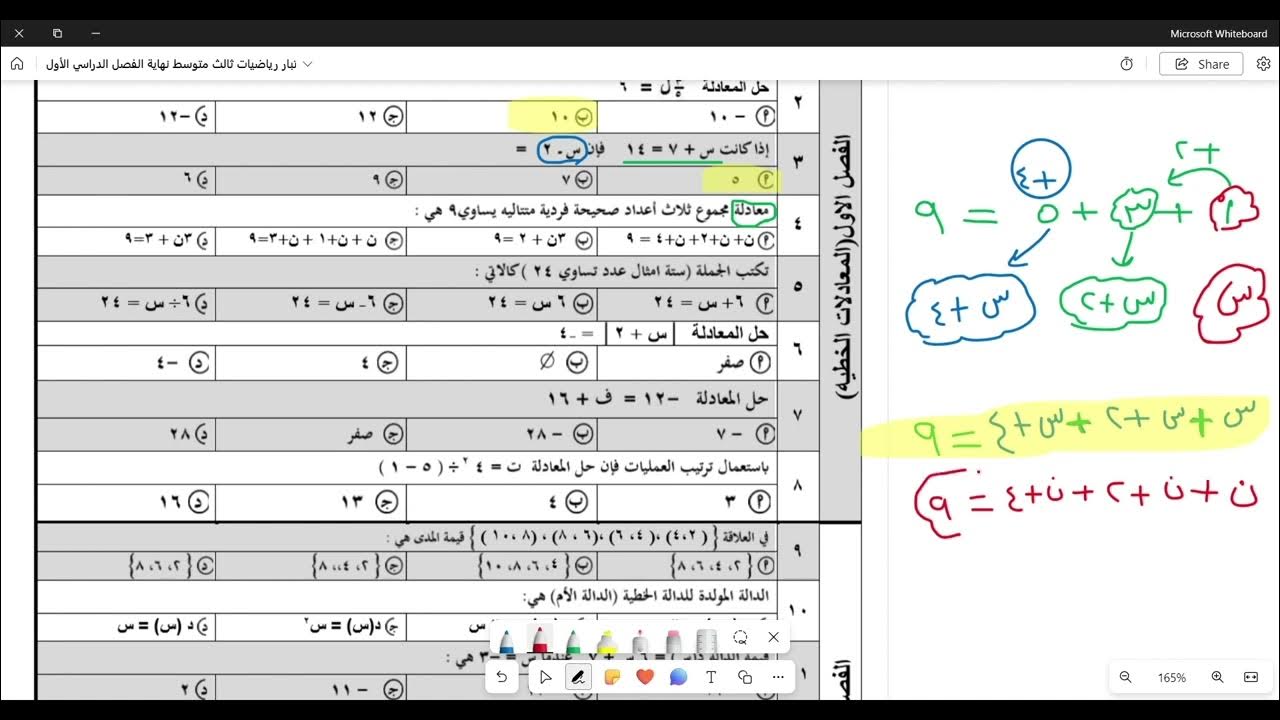 Microsoft Whiteboard
نبار رياضيات ثالث متوسط نهاية الفصل الدراسي الأول
Share
الفصل الاول(المعادلات الخطيه)
٢ حل المعادلة ٣/٥ ل = ٦
أ) -١٠ ب) ١٠ ج) ١٢ د) -١٢
٣ إذا كانت س + ٧ = ١٤ فإن س - ٢ =
أ) ٥ ب) ٧ ج) ٩ د) ٦
٤ معادلة مجموع ثلاث أعداد صحيحة فردية متتاليه يساوي٩ هي :
أ) ن+ ن+٢+ ن+٤ = ٩ ب) ٣ن + ٢ =٩ ج) ن + ن+١ + ن+٣=٩ د) ٣ن + ٣=٩
٥ تكتب الجملة (ستة امثال عدد تساوي ٢٤ ) كالاتي :
أ) ٦+ س = ٢٤ ب) ٦ س = ٢٤ ج) ٦- س = ٢٤ د) ٦÷ س = ٢٤
٦ حل المعادلة | س + ٢ | = -٤
أ) صفر ب) ∅ ج) ٤ د) -٤
٧ حل المعادلة -١٢ = ف + ١٦
أ) -٧ ب) -٢٨ ج) صفر د) ٢٨
٨ باستعمال ترتيب العمليات فإن حل المعادلة ت = ٤ ٢ ÷ ( ٥ - ١ )
أ) ٣ ب) ٤ ج) ١٣ د) ١٦
٩ في العلاقة { ( ٤،٢) ،( ٤ ،٦) ،( ٦ ، ٨) ، ( ٨ ،١٠ ) } قيمة المدى هي :
أ) {٢ ،٤ ،٦ ،٨} ب) {٤ ،٦ ،٨ ،١٠} ج) {٢ ،٤ ،٨} د) {٢ ،٦ ،٨}
١٠ الدالة المولدة للدالة الخطية (الدالة الأم) هي:
ج) د(س) = س٢ د) د (س) = س
قيمة الدالة د(س) = ٦ س + ٧ عندما س = -٣ هي :
ج) -١١ د) ٢
+٢
+٤
١ + ٣ + ٥ = ٩
س س+٢ س+٤
س + س +٢ + س+ ٤ = ٩
ن + ن +٢ + ن+٤ = ٩
165%